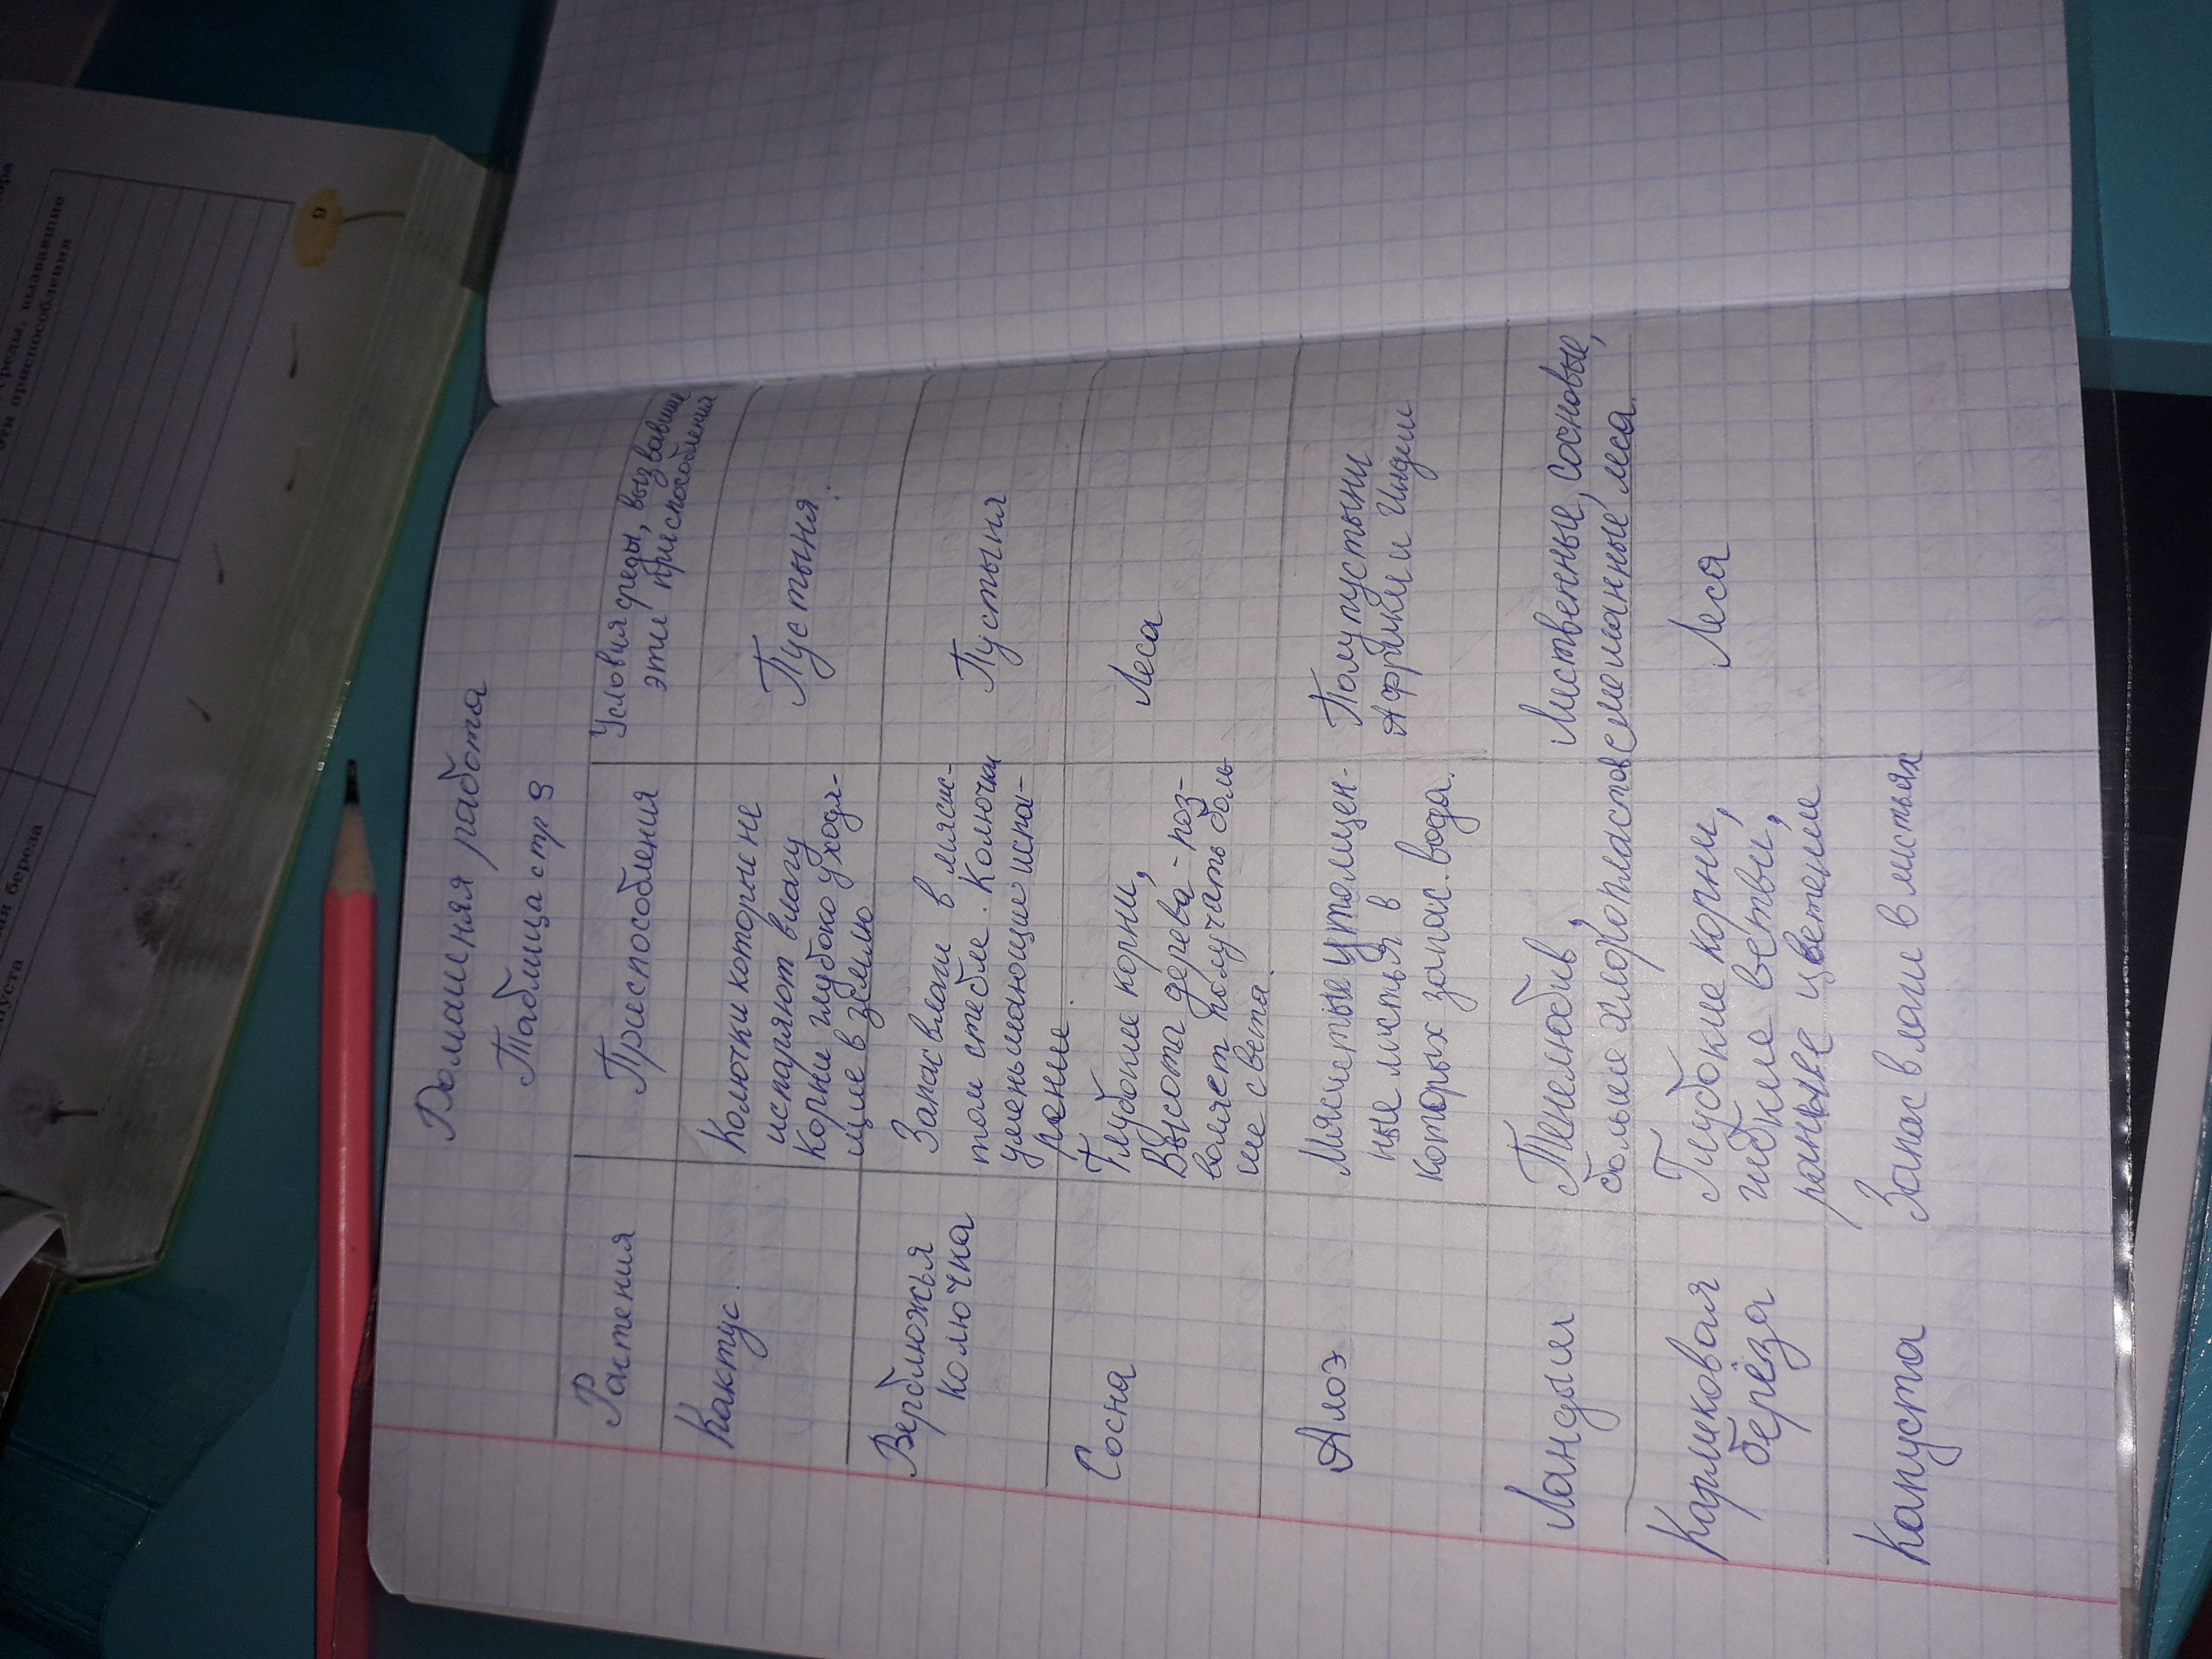 Домашняя работа
Таблица стр 9
Растения
Приспособления
Условия среды, вызвавшие
эти приспособления
Кактус.
Колючки которые не
испаряют влагу
Корни глубоко уходя-
щие в землю
Пустыня.
Верблюжья
колючка
Запас влаги в мясис-
том стебле. Колючки
уменьшающие испа-
рение
Пустыня
Сосна
Глубокие корни,
Высота дерева - поз-
воляет получать боль
ше света.
Леса
Алоэ
Мясистые утолщен-
ные листья в
которых запас. вода.
Полупустыни
Африки и Индии
Ландыш
Тенелюбив,
больше хлоропластов
Лиственные, сосновые,
смешанные леса.
Карликовая
берёза
Глубокие корни,
гибкие ветви,
раннее цветение
Леса
Капуста
Запас влаги в листьях
среды, вызвавшие
эти приспособления
ая береза
пуста
9